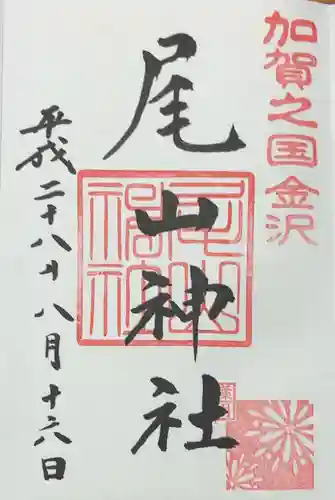 加賀之国金沢
尾山神社
尾山神社
平成二十八年八月十六日